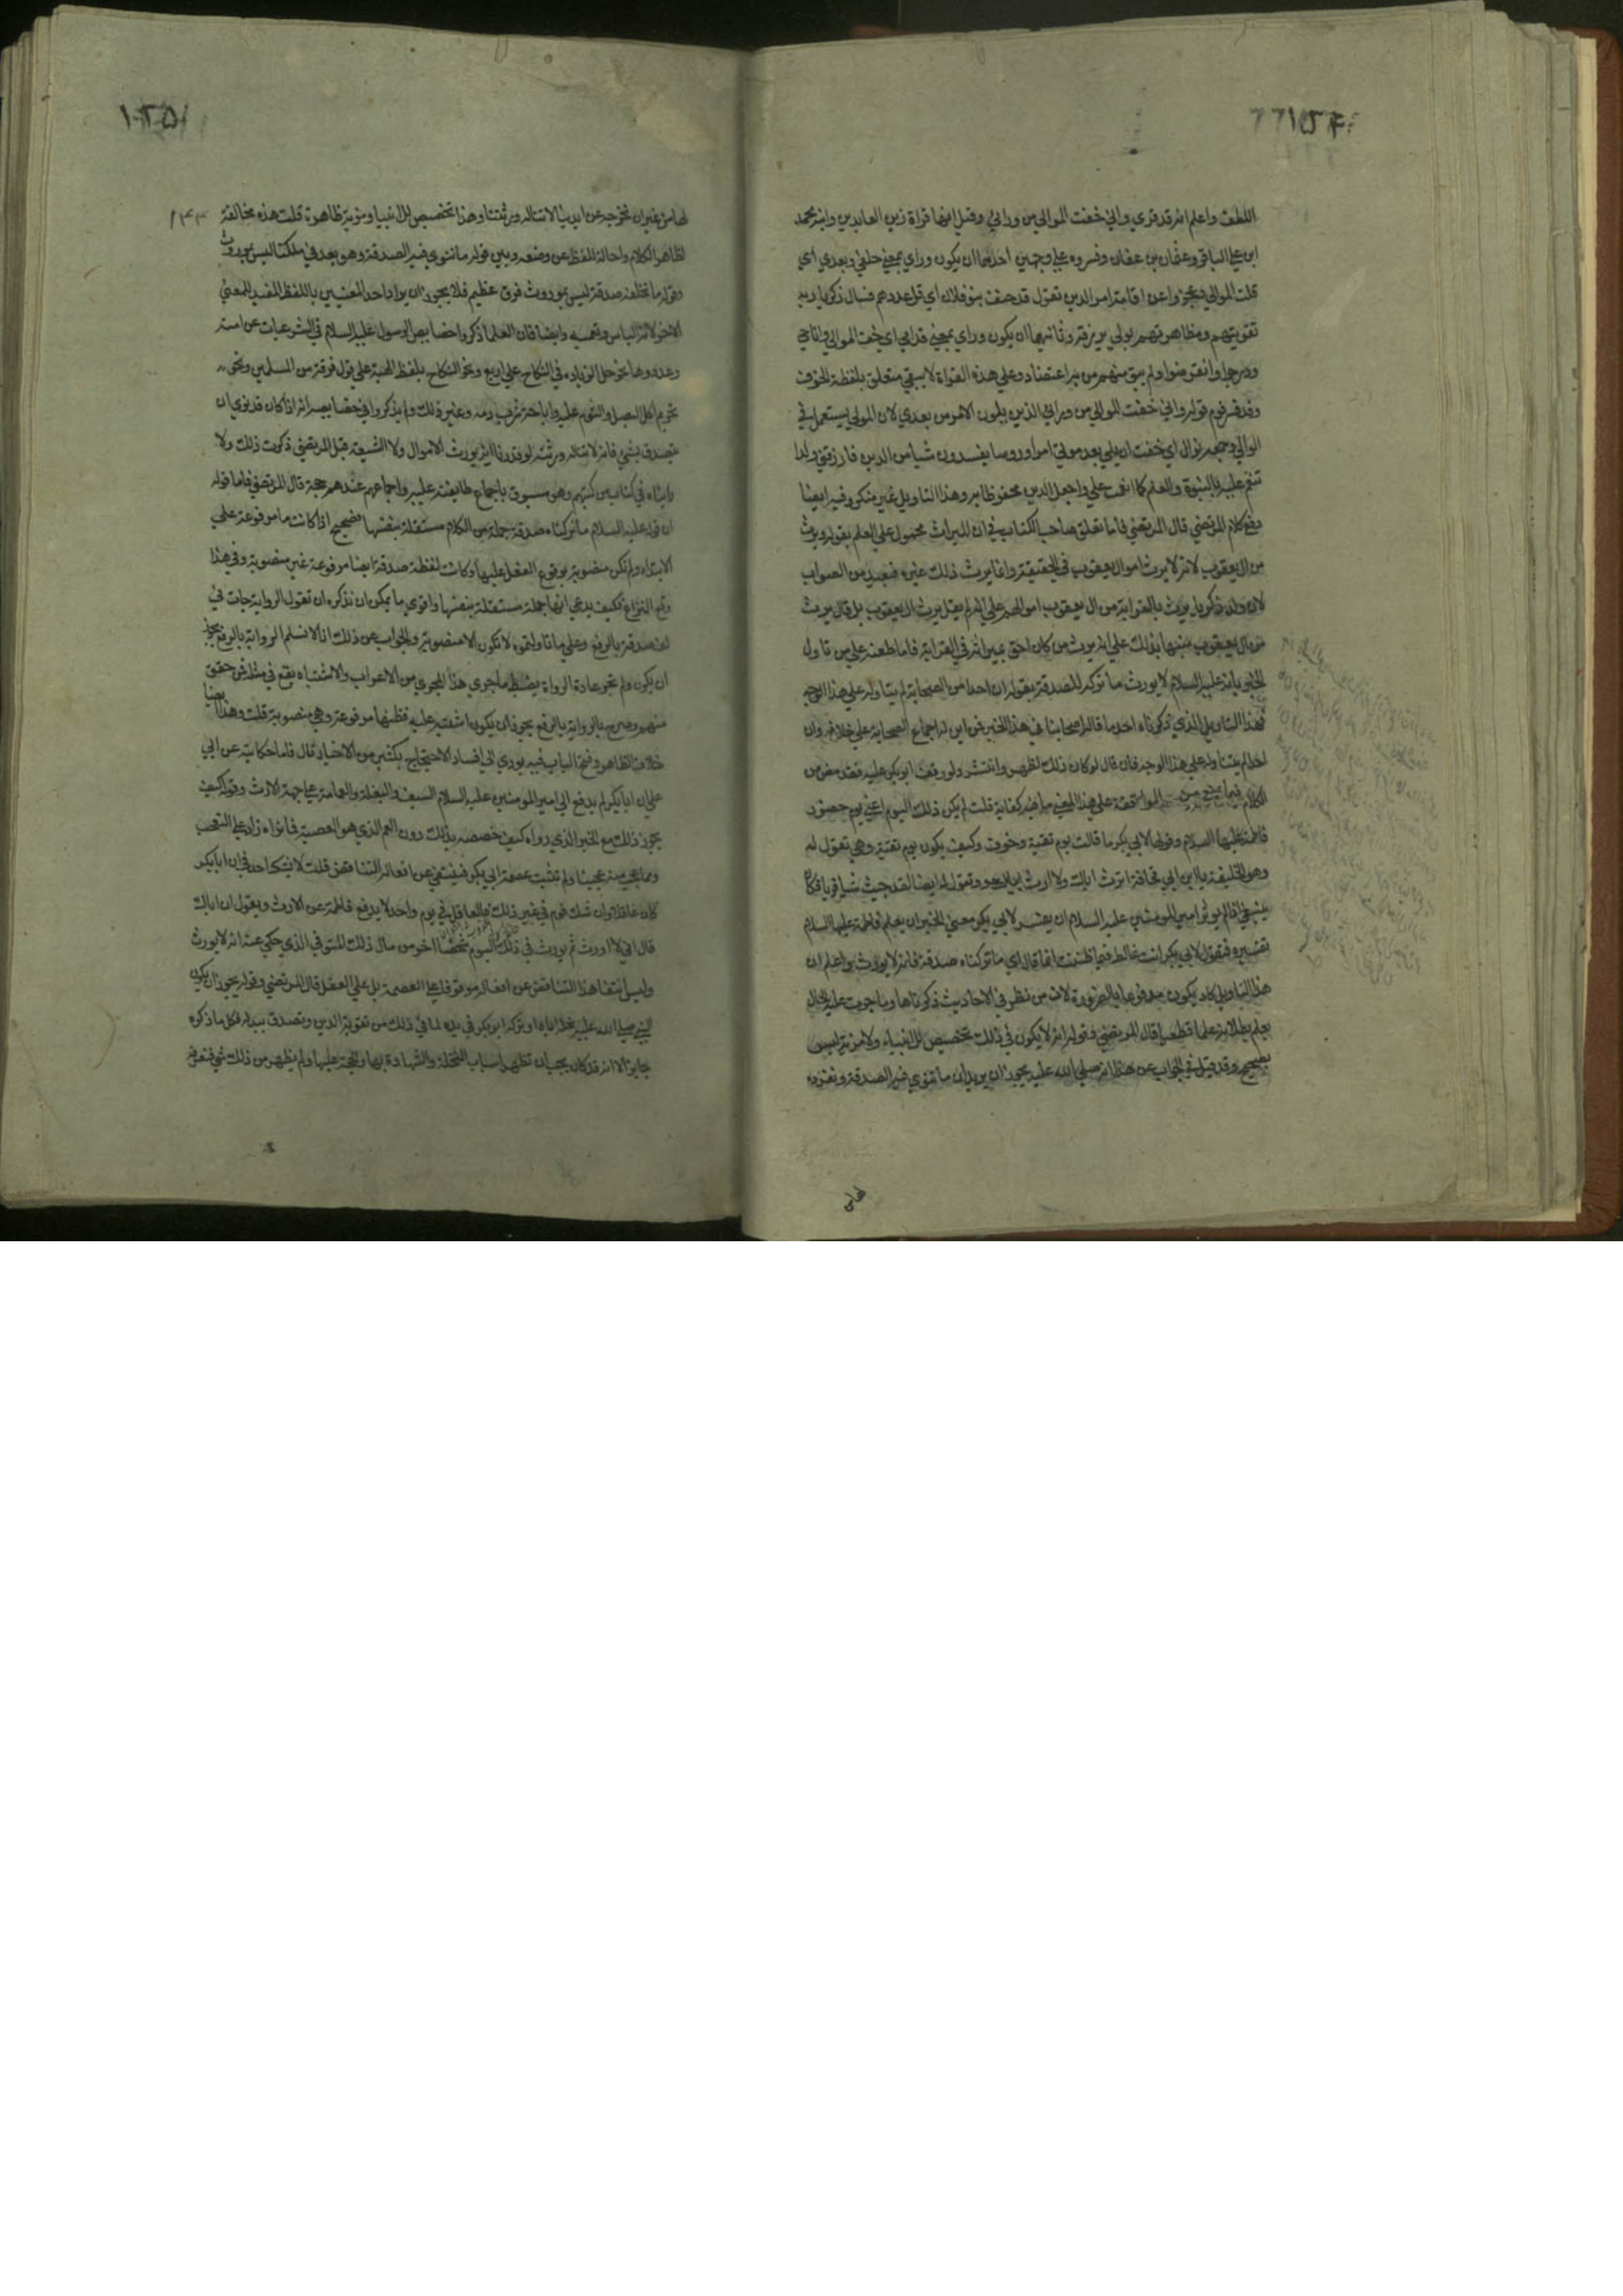 اللطف واعلم انه قد قري واني خفت الموالي من وراي وقيل انها قراة زين العابدين وابنه محمد
ابن علي الباقر وعثمان بن عفان وفسروه علي وجهين احدهما ان يكون وراي بمعني خلفي وبعدي اي
قلت الموالي وعجزوا عن اقامة امر الدين تقول قد خف بنو فلان اي قل عددهم فسال زكريا ربه
تقويتهم ومظاهرتهم بولي يرزقه وثانيهما ان يكون وراي بمعني قدامي اي خفت الموالي وانا حي
ودرجوا وانقرضوا ولم يبق منهم من به اعتضاد وعلي هذه القراة لا يبقي متعلق بلفظة الخوف
وقد فسر قوم قوله واني خفت الموالي من وراي الذين يلون الامر من بعدي لان المولي يستعمل في
الوالي وجمعه موال اي خفت ان يلي بعد موتي امرا وروسا يفسدون شيا من الدين فارزقني ولدا
تنعم عليه بالنبوة والعلم كما انعمت علي واجعل الدين محفوظا به وهذا التاويل غير منكر وفيه ايضا
دفع كلام المرتضي قال المرتضي فاما تعلق صاحب الكتاب في ان الميراث محمول علي العلم بقوله ويرث
من ال يعقوب لانه لا يرث اموال يعقوب في الحقيقة وانما يرث ذلك غيره فبعيد من الصواب
لان ولد زكريا يرث بالقرابة من ال يعقوب اموالهم علي انه لم يقل يرث ال يعقوب بل قال يرث
من ال يعقوب منبها بذلك علي انه يرث من كان احق بميراثه في القرابة فاما طعنه علي من تاول
الخبر بانه عليه السلام لا يورث ما تركه للصدقة بقوله ان احدا من الصحابة لم يتاوله علي هذا الوجه
فهذا التاويل الذي ذكرناه احد ما قاله اصحابنا في هذا الخبر فمن اين له اجماع الصحابة علي خلافه وان
احدا لم يتاوله علي هذا الوجه فان قال لو كان ذلك لظهر وانتشر ولوقف ابو بكر عليه فقد مضي من
الكلام فيما يمنع من الموافقة علي هذا المعني ما فيه كفاية قلت لم يكن ذلك اليوم اعني يوم حضور
فاطمة عليها السلام وقولها لابي بكر ما قالت يوم تقية وخوف وكيف يكون يوم تقية وهي تقول له
وهو الخليفة يا ابن ابي قحافة اترث اباك ولا ارث ابي وتقول له ايضا لقد جيت شيا فريا فكان
ينبغي اذا لم يوثر امير المومنين عليه السلام ان يفسر لابي بكر معني الخبر ان يعلم فاطمة عليها السلام
تفسيره فتقول لابي بكر انت غالط فيما ظننت انما قال اي ما تركناه صدقة فانه لا يورث واعلم ان
هذا التاويل كاد يكون مدفوعا بالضرورة لان من نظر في الاحاديث ذكرناها وما جرت عليه الحال
يعلم بطلانه علما قطعيا قال المرتضي وقوله انه لا يكون في ذلك تخصيص للانبياء ولا مزية ليس
بصحيح وقد قيل في الجواب عن هذا انه صلي الله عليه يجوز ان يريد ان ما ننوي فيه الصدقة ونفرده
لها من
لها من غير ان نخرجه عن ايدينا لا تناله ورثتنا وهذا تخصيص للانبيا ومزية ظاهرة قلت هذه مخالفة
لظاهر الكلام واحالة اللفظ عن وضعه وبين قوله ما ننوي فيه الصدقة وهو بعد في ملكنا ليس بموروث
وقوله ما نخلفه صدقة ليس بموروث فرق عظيم فلا يجوز ان يراد احد المعنيين باللفظ المفيد للمعني
الاخر لانه الباس وتعمية وايضا فان العلما ذكروا خصايص الرسول عليه السلام في الشرعيات عن امته
وعددوها نحو حل الزيادة في النكاح علي اربع ونحو النكاح بلفظ الهبة علي قول فرقة من المسلمين ونحو
تحريم اكل البصل والثوم عليه واباحة شرب دمه وغير ذلك ولم يذكروا في خصايصه انه اذا كان قد نوي ان
يتصدق بشي فانه لا تناله ورثته لو قدرنا انه يورث الاموال ولا الشيعة قبل المرتضي ذكرت ذلك ولا
راينا في كتاب من كتبهم وهو مسبوق باجماع طايفته عليه واجماعهم عندهم حجة قال المرتضي فاما قوله
ان قوله عليه السلام ما تركناه صدقة جملة من الكلام مستقلة بنفسها فصحيح اذا كانت ما مرفوعة علي
الابتداء ولم تكن منصوبة بوقوع الفعل عليها وكانت لفظة صدقة ايضا مرفوعة غير منصوبة وفي هذا
وقع النزاع فكيف يدعي انها جملة مستقلة بنفسها واقوي ما يمكن ان نذكره ان نقول الرواية جات في
لفظ صدقة بالرفع وعلي ما تاولتموه لا تكون الا منصوبة والجواب عن ذلك انا لا نسلم الرواية بالرفع يجوز
ان يكون ولم تجر عادة الرواة بضبط ما جري هذا المجري من الاعراب والاشتباه يقع في مثله فمن حقق
منهم وصرح بالرواية بالرفع يجوز ان يكون اشتبه عليه فظنها مرفوعة وهي منصوبة قلت وهذا ايضا
خلاف الظاهر وفتح الباب فيه يودي الي افساد الاحتجاج بكثير من الاخبار قال فاما حكايته عن ابي
علي ان ابا بكر لم يدفع الي امير المومنين عليه السلام السيف والبغلة والعمامة علي جهة الارث وقوله كيف
يجوز ذلك مع الخبر الذي رواه وكيف خصصه بذلك دون العم الذي هو العصبة فما نراه زاد علي التعجب
ومما عجب منه عجبنا ولم تثبت عصمة ابي بكر فينتفي عن افعاله التناقض قلت لا يشك احد في ان ابا بكر
كان عاقلا وان شك قوم في غير ذلك فالعاقل في يوم واحد لا يدفع فاطمة عن الارث ويقول ان اباك
قال اني لا اورث ثم يورث في ذلك اليوم شخصا اخر من مال ذلك المتوفي الذي حكي عنه انه لا يورث
وليس انتفا هذا التناقض عن افعاله موقوفا علي العصمة بل علي العقل قال المرتضي وقوله يجوز ان يكون
النبي صلي الله عليه نحله اياه وتركه ابو بكر في يده لما في ذلك من تقوية الدين وتصدق ببدله فكل ما ذكره
جايز الا انه قد كان يجب ان تظهر اسباب النحلة والشهادة بها والحجة عليها ولم يظهر من ذلك شي فنعرفه